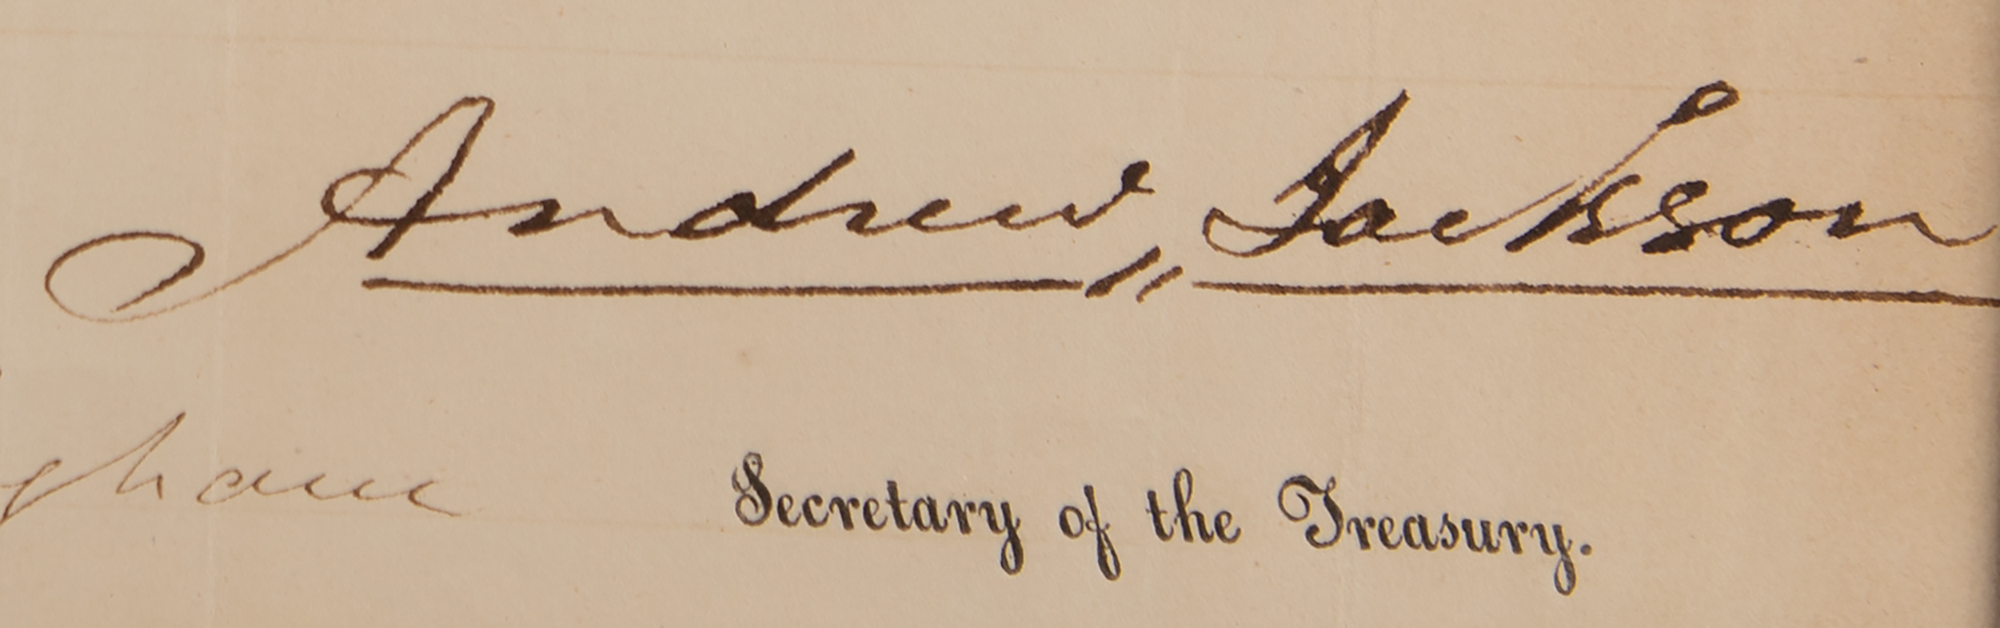 Andrew Jackson
gham Secretary of the Treasury.